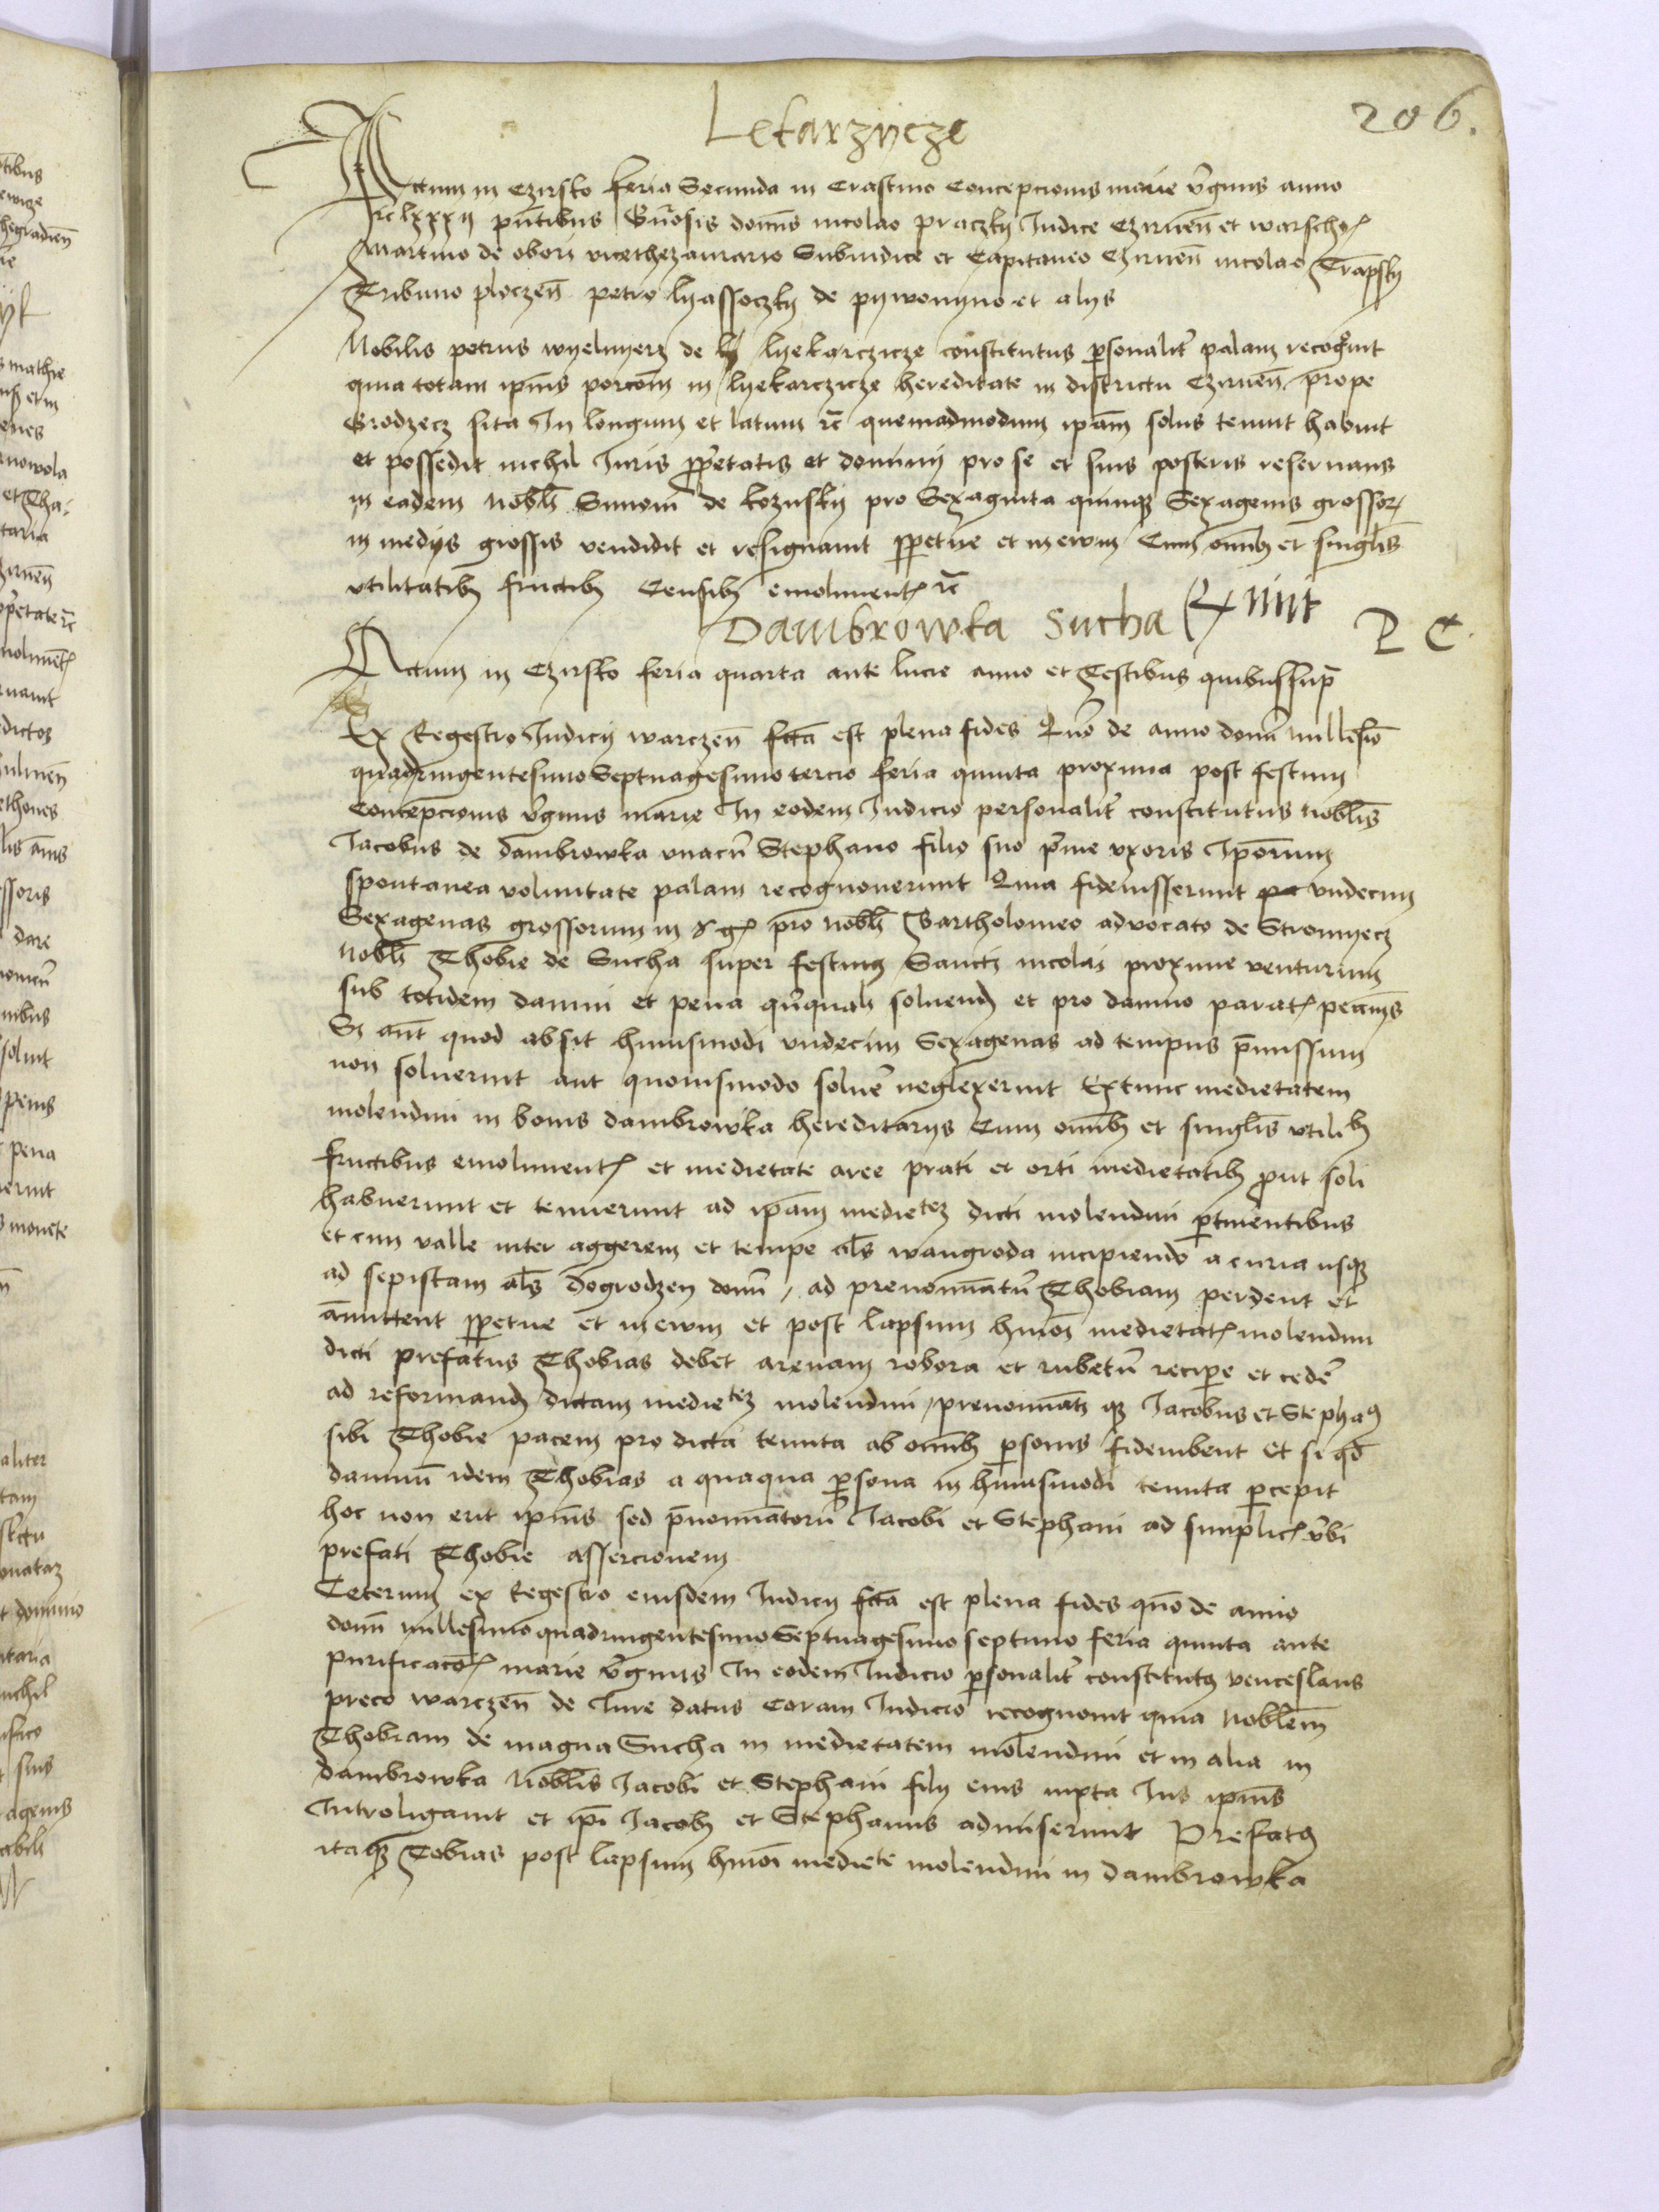 206.
Lekarzycze
Actum in Czirsko feria Secunda in Crastino Concepcionis marie v̄ginis anno
rc lxxxij pn̄tibus Gn̄osis domīs nicolao praczky Judice Czirnen̄ et warschoꝝ
Martino de obori vicethezaurario Subiudice et Capitaneo Czirnen̄ nicolao Trāpsky
Tribuno ploczen̄ petro lyassoczky de pywonyno et alijs
Nobilis petrus wyelmyerz de lyekarczicze constitutus ꝑsonalit̄ palam recoḡuit
quia totam ipīus porcōm in lyekarczicze hereditate in districtu Czirnen̄ prope
Grodzecz sita In longum et latum rc̄ quemadmodum ip̄am solus tenuit habuit
et possedit nichil Juris ꝓprietatis et dominij pro se et suis posteris reservans
in eadem nobli Simoni de kozusky pro Sexaginta quinqꝫ Sexagenis grossoꝝ
in medijs grossis vendidit et resignauit ꝑpetue et in ewm Cum om̄ibꝫ et singl̄is
vtilitatibꝫ fructibꝫ Censibꝫ emolumentꝭ rc̄
Dambrowka Sucha
P C
Actum in Czirsko feria quarta ante lucie anno et Testibus quibus supra
Ex Regestro Judicij warczen̄ fcta est plena fides Quō de anno domī millesīo
quadringentesimo Septuagesimo tercio feria quinta proxima post festum
Concepcionis v̄ginis marie In eodem Judicio personalit̄ constitutus nobl̄is
Jacobus de dambrowka vnacū Stephano filio suo p̄me vxoris Ip̄orum
spontanea voluntate palam recognouerunt Quia fideiusserunt pa vndecim
Sexagenas grossorum in gꝭ pro nobli Bartholomeo advocato de Stromyecz
nobli Thobie de Sucha super festum Sancti nicolai proxime venturum
sub totidem damni et pena soluendꝭ et pro damno paratꝭ pecūijs
Si aūt quod absit huiusmodi vndecim Sexagenas ad tempus p̄missum
non soluerint aut quouismodo soluē neglexerint Extunc medietatem
molendini in bonis dambrowka hereditarijs Cum om̄ibꝫ et singl̄is vtilibꝫ
fructibus emolumentꝭ et medietate aree prati et orti medietatibꝫ prout soli
habuerunt et tenuerunt ad ip̄am medietez dicti molendini ꝑtinentibus
et cum valle inter aggerem et tempe al̄s wangroda incipiendo a curia usqꝫ
ad sepistam al̄s dogrodzen domū, ad prenominatū Thobiam perdent et
am̄ittent ꝑpetue et in ewm et post lapsum hmōi medietatꝭ molendini
dicti prefatus Thobias debet arenam robora et rubetū recipere et cedē
ad reformandꝭ dictam medietez molendini prenominati qꝫ Jacobus et Stephanꝰ
sibi Thobie pacem pro dicta tenuta ab om̄ibꝫ ꝑsonis fideiubent Et si qd̄
damnū idem Thobias a quaqua ꝑsona in huiusmodi tenuta ꝑcepit
hoc non erit ipīus sed p̄nominatorū Jacobi et Stephani ad simplicꝭ v̄bi
prefati Thobie assercionem
Ceterum ex Regestro eiusdem Judicij fcta est plena fides quō de anno
domī millesimo quadringentesimo Septuagesimo septimo feria quinta ante
purificacōꝭ marie v̄ginis In eodem Judicio ꝑsonalit̄ constitutꝰ venceslaus
preco warczen̄ de Jure datus Coram Judicio recognouit quia noblem
Thobiam de magna Sucha in medietatem molendini et in alia in
dambrowka noblis Jacobi et Stephani filij eius iuxta Jus ipīus
Introligauit et ip̄i Jacobꝰ et Stephanus admiserunt Prefatꝰ
itaqꝫ Tobias post lapsum hmōi mediete molendini in dambrowka